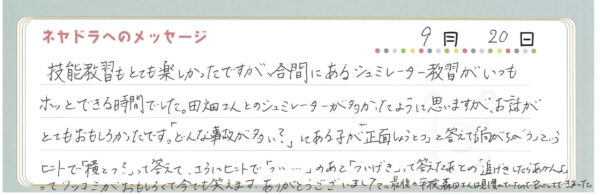 ネヤドラへのメッセージ
9月 20日
技能教習もとても楽しかったですが、合間にあるシュミレーター教習がいつも
ホッとできる時間でした。田畑さんとのシュミレーターが多かったように思いますが、お話が
とてもおもしろかったです。「どんな事故が多い?」にある子が「正面しょうとつ」と答えて「向がちがう」という
ヒントで「横とつ?」って答えて、さらにヒントで「つい……」のあと「ついげき」って答えたあとの「追げきしたらあかん」
ってツッコミがおもしろくて今でも笑えます。ありがとうございました。最後の学校